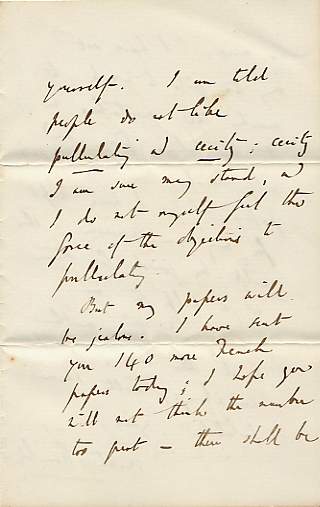 yourself. I am told
people do not like
pullulating and cecity; cecity
I am sure may stand, and
I do not myself feel the
force of the objections to
pullulating.
But my papers will
be jealous. I have sent
you 140 more French
papers today; I hope you
will not think the number
too great — there shall be